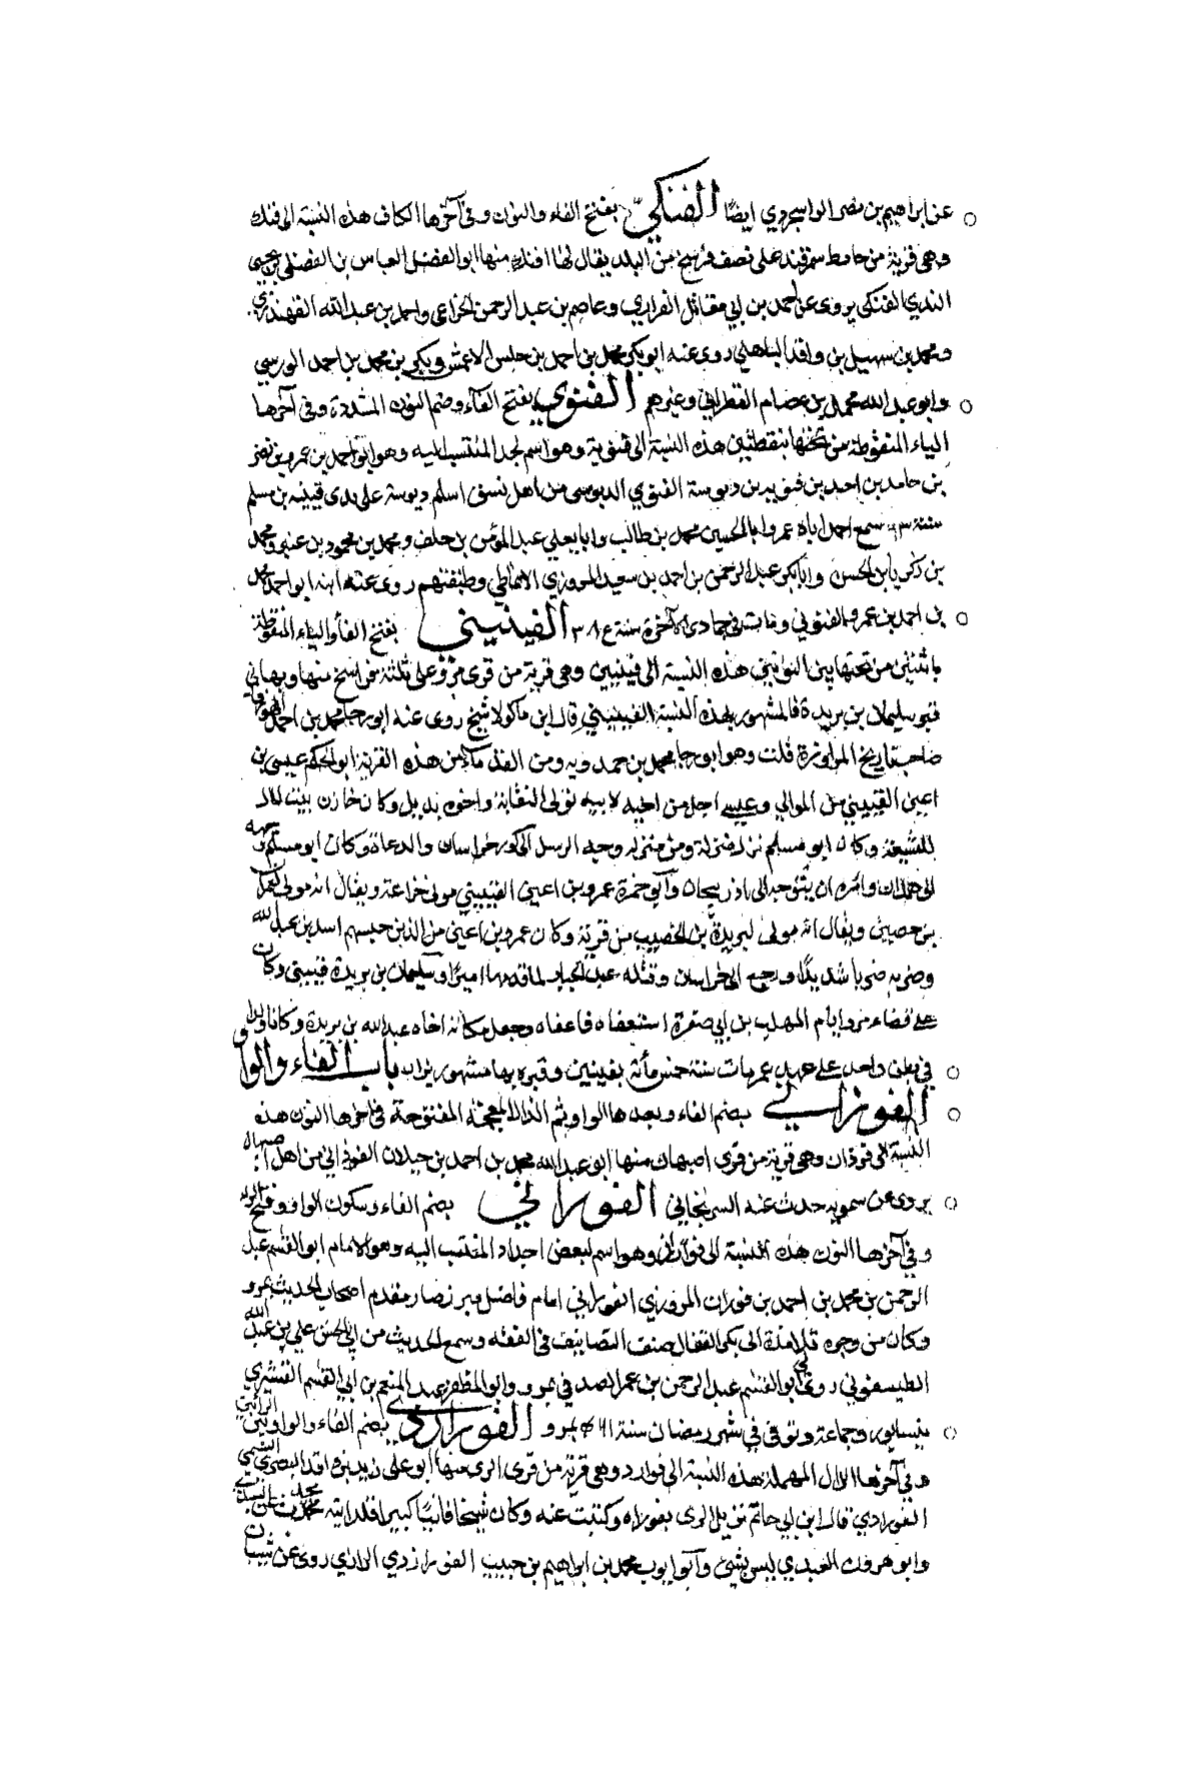 عن ابراهيم بن نصر الواسجردي ايضا الفنكي بفتح الفاء والنون وفي آخرها الكاف هذه النسبة الى فنك
وهي قرية من حامط سمرقند على نصف فرسخ من البلد يقال لها افنك منها ابو الفضل العباس بن الفضل بن عيسى
الفنكي يروى عن احمد بن ابي مقاتل الفزاري وعاصم بن عبد الرحمن الخزاعي واحمد بن عبد الله القهندزي
ومحمد بن سهيل بن واقد الباهلي روى عنه ابو بكر محمد بن احمد بن حلبس الاعمش وبكر بن محمد بن احمد الورسي
وابو عبد الله محمد بن عصام القطراني وغيرهم الفنوي بفتح الفاء وضم النون المشددة وفي آخرها
الياء المنقوطة من تحتها بنقطتين هذه النسبة الى فنوية وهو اسم لجد المنتسب اليه وهو ابو احمد بن عمرو بن نصر
بن حامد بن احمد بن فنويه بن دبوسة الفنوي الدبوسي من اهل نسف اسلم دبوسة على يدى قتيبة بن مسلم
سنة ٩٣ سمع احمد اباه عمرا وابا الحسين محمد بن طالب وابا يعلى عبد المؤمن بن خلف ومحمد بن محمود بن عنبر ومحمد
بن زكريا بن الحسين وابا بكر عبد الرحمن بن احمد بن سعيد المروزي الانماطي وطبقتهم روى عنه ابنه ابو احمد محمد
بن احمد بن عمرو الفنوئي ومات في جمادى الآخرة سنة ٣٨٤ الفينيني بفتح الفاء والياء المنقوطة
باثنتين من تحتها بين النونين هذه النسبة الى فينين وهي قرية من قرى مرو على ثلثة فراسخ منها وبها
قبر سليمان بن بريدة فالمشهور بهذه النسبة الفينيني قال ابن ماكولا شيخ روى عنه ابو رجا محمد بن احمد الهورقاني
صاحب تاريخ المراوزة قلت وهو ابو رجا محمد بن حمدويه ومن القدماء من هذه القرية ابو الحكم عيسى بن
اعين الفينيني من الموالي وعيسى اجل من اخيه لابيه تولى النقابة واخوه بديل وكان خازن بيت المال
للشيعة وكان ابو مسلم نزل منزله ومن منزله وجه الرسل الى كور خراسان والدعاة وكان ابو مسلم وجهه
الى همدان وامره ان يتوجه الى اذربيجان وابو حمزة عمرو بن اعين الفينيني مولى خزاعة ويقال انه مولى لعمران
بن حصين ويقال انه مولى لبريدة بن الحصيب من قرية وكان عمرو بن اعين من الذين حبسهم اسد بن عبد الله
وضربه ضربا شديدا ورجع الى خراسان وقتله عبد الجبار لما قدمها اميرا وسليمان بن بريدة فينيني وكان
على قضاء مرو ايام المهلب بن ابي صفرة استعفاه فاعفاه وجعل مكانه اخاه عبد الله بن بريدة وكانا ولدا
في بطن واحد على عهد عمر مات سنة خمس مائة بفينين وقبره بها مشهور يزار باب الفاء والواو
الفوذاني بضم الفاء وبعدها الواو ثم الذال المعجمة المفتوحة في آخرها النون هذه
النسبة الى فوذان وهي قرية من قرى اصبهان منها ابو عبد الله محمد بن احمد بن جيلان الفوذاني من اهل اصبهان
يروى عن سمويه حدث عنه السرنجاني الفوراني بضم الفاء وسكون الواو وفتح الراء
وفي آخرها النون هذه النسبة الى فوران وهو اسم لبعض اجداد المنتسب اليه وهو الامام ابو القاسم عبد
الرحمن بن محمد بن احمد بن فوران المروزي الفوراني امام فاضل مبرز صار مقدم اصحاب الحديث بمرو
وكان من وجوه تلامذة ابي بكر القفال صنف التصانيف في الفقه وسمع الحديث من ابي الحسن علي بن عبد الله
الطيسفوني روى لي ابو القاسم عبد الرحمن بن عمر الصد في بمرو وابو المظفر عبد المنعم بن ابي القاسم القشيري
بنيسابور وجماعة وتوفي في شهر رمضان سنة ٤٦١ بمرو الفورادي بضم الفاء والواو بين
وفي آخرها الدال المهملة هذه النسبة الى فوارد وهي قرية من قرى الري منها ابو علي زيد بن واقد البصري السمتي
الفورادي قال ابن ابي حاتم نزيل الري بفوراه وكتبت عنه وكان شيخا فانيا كبيرا
وابو هرون العبدي ليس بشئ وابو ايوب محمد بن ابراهيم بن حبيب الفورازدي الرازي روى عن شيبان